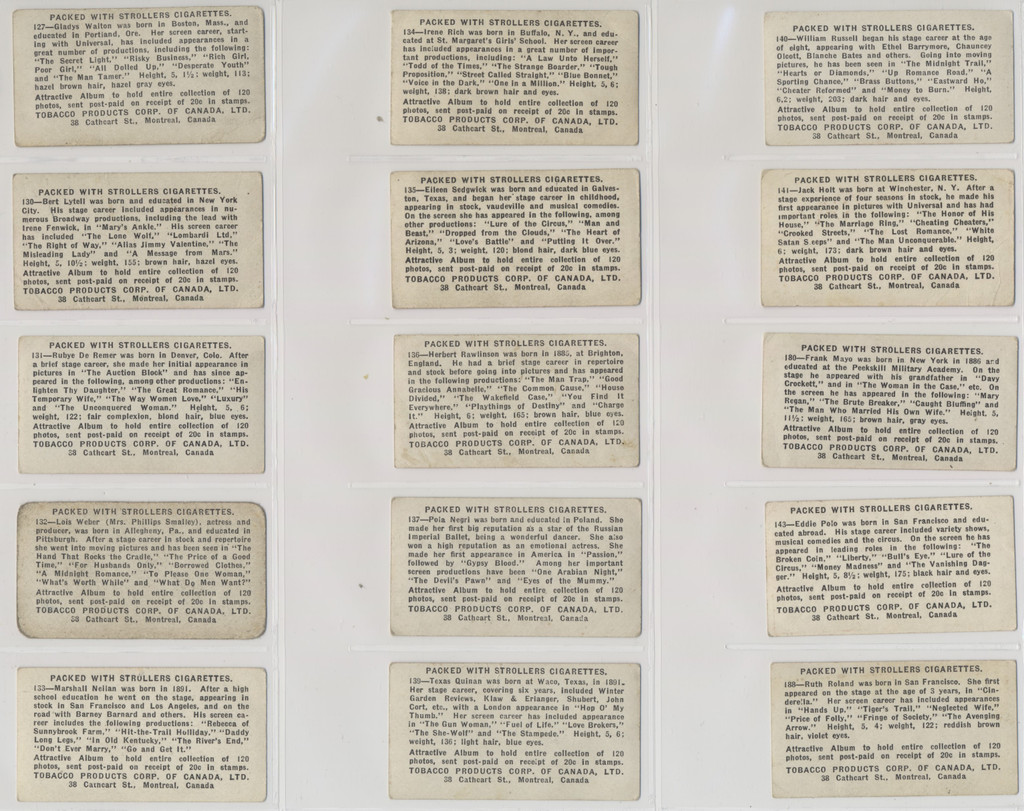 PACKED WITH STROLLERS CIGARETTES.
127—Gladys Walton was born in Boston, Mass., and
educated in Portland, Ore. Her screen career, start-
ing with Universal, has included appearances in a
great number of productions, including the following:
"The Secret Light," "Risky Business," "Rich Girl,
Poor Girl," "All Dolled Up," "Desperate Youth"
and "The Man Tamer." Height, 5, 1½; weight, 113;
hazel brown hair, hazel gray eyes.
Attractive Album to hold entire collection of 120
photos, sent post-paid on receipt of 20c in stamps.
TOBACCO PRODUCTS CORP. OF CANADA, LTD.
38 Cathcart St., Montreal, Canada
PACKED WITH STROLLERS CIGARETTES.
130—Bert Lytell was born and educated in New York
City. His stage career included appearances in nu-
merous Broadway productions, including the lead with
Irene Fenwick, in "Mary's Ankle." His screen career
has included "The Lone Wolf," "Lombardi Ltd.,"
"The Right of Way," "Alias Jimmy Valentine," "The
Misleading Lady" and "A Message from Mars."
Height, 5, 10½; weight, 155; brown hair, hazel eyes.
Attractive Album to hold entire collection of 120
photos, sent post-paid on receipt of 20c in stamps.
TOBACCO PRODUCTS CORP. OF CANADA, LTD.
38 Cathcart St., Montreal, Canada
PACKED WITH STROLLERS CIGARETTES.
131—Rubye De Remer was born in Denver, Colo. After
a brief stage career, she made her initial appearance in
pictures in "The Auction Block" and has since ap-
peared in the following, among other productions: "En-
lighten Thy Daughter," "The Great Romance," "His
Temporary Wife," "The Way Women Love," "Luxury"
and "The Unconquered Woman." Height, 5, 6;
weight, 122; fair complexion, blond hair, blue eyes.
Attractive Album to hold entire collection of 120
photos, sent post-paid on receipt of 20c in stamps.
TOBACCO PRODUCTS CORP. OF CANADA, LTD.
38 Cathcart St., Montreal, Canada
PACKED WITH STROLLERS CIGARETTES.
132—Lois Weber (Mrs. Phillips Smalley), actress and
producer, was born in Allegheny, Pa., and educated in
Pittsburgh. After a stage career in stock and repertoire
she went into moving pictures and has been seen in "The
Hand That Rocks the Cradle," "The Price of a Good
Time," "For Husbands Only," "Borrowed Clothes,"
"A Midnight Romance," "To Please One Woman,"
"What's Worth While" and "What Do Men Want?"
Attractive Album to hold entire collection of 120
photos, sent post-paid on receipt of 20c in stamps.
TOBACCO PRODUCTS CORP. OF CANADA, LTD.
38 Cathcart St., Montreal, Canada
PACKED WITH STROLLERS CIGARETTES.
133—Marshall Neilan was born in 1891. After a high
school education he went on the stage, appearing in
stock in San Francisco and Los Angeles, and on the
road with Barney Barnard and others. His screen ca-
reer includes the following productions: "Rebecca of
Sunnybrook Farm," "Hit-the-Trail Holliday," "Daddy
Long Legs," "In Old Kentucky," "The River's End,"
"Don't Ever Marry," "Go and Get It."
Attractive Album to hold entire collection of 120
photos, sent post-paid on receipt of 20c in stamps.
TOBACCO PRODUCTS CORP. OF CANADA, LTD.
38 Cathcart St., Montreal, Canada
PACKED WITH STROLLERS CIGARETTES.
134—Irene Rich was born in Buffalo, N. Y., and edu-
cated at St. Margaret's Girls' School. Her screen career
has included appearances in a great number of impor-
tant productions, including: "A Law Unto Herself,"
"Todd of the Times," "The Strange Boarder," "Tough
Proposition," "Street Called Straight," "Blue Bonnet,"
"Voice in the Dark," "One in a Million." Height, 5, 6;
weight, 138; dark brown hair and eyes.
Attractive Album to hold entire collection of 120
photos, sent post-paid on receipt of 20c in stamps.
TOBACCO PRODUCTS CORP. OF CANADA, LTD.
38 Cathcart St., Montreal, Canada
PACKED WITH STROLLERS CIGARETTES.
135—Eileen Sedgwick was born and educated in Galves-
ton, Texas, and began her stage career in childhood,
appearing in stock, vaudeville and musical comedies.
On the screen she has appeared in the following, among
other productions: "Lure of the Circus," "Man and
Beast," "Dropped from the Clouds," "The Heart of
Arizona," "Love's Battle" and "Putting It Over."
Height, 5, 3; weight, 120; blond hair, dark blue eyes.
Attractive Album to hold entire collection of 120
photos, sent post-paid on receipt of 20c in stamps.
TOBACCO PRODUCTS CORP. OF CANADA, LTD.
38 Cathcart St., Montreal, Canada
PACKED WITH STROLLERS CIGARETTES.
136—Herbert Rawlinson was born in 1885, at Brighton,
England. He had a brief stage career in repertoire
and stock before going into pictures and has appeared
in the following productions: "The Man Trap," "Good
Gracious Annabelle," "The Common Cause," "House
Divided," "The Wakefield Case," "You Find It
Everywhere," "Playthings of Destiny" and "Charge
It." Height, 6; weight, 165; brown hair, blue eyes.
Attractive Album to hold entire collection of 120
photos, sent post-paid on receipt of 20c in stamps.
TOBACCO PRODUCTS CORP. OF CANADA, LTD.
38 Cathcart St., Montreal, Canada
PACKED WITH STROLLERS CIGARETTES.
137—Pola Negri was born and educated in Poland. She
made her first big reputation as a star of the Russian
Imperial Ballet, being a wonderful dancer. She also
won a high reputation as an emotional actress. She
made her first appearance in America in "Passion,"
followed by "Gypsy Blood." Among her important
screen productions have been "One Arabian Night,"
"The Devil's Pawn" and "Eyes of the Mummy."
Attractive Album to hold entire collection of 120
photos, sent post-paid on receipt of 20c in stamps.
TOBACCO PRODUCTS CORP. OF CANADA, LTD.
38 Cathcart St., Montreal, Canada
PACKED WITH STROLLERS CIGARETTES.
138—Texas Quinan was born at Waco, Texas, in 1891.
Her stage career, covering six years, included Winter
Garden Reviews, Klaw & Erlanger, Shubert, John
Cort, etc., with a London appearance in "Hop O' My
Thumb." Her screen career has included appearance
in "The Gun Woman," "Fuel of Life," "Love Brokers,"
"The She-Wolf" and "The Stampede." Height, 5, 6;
weight, 136; light hair, blue eyes.
Attractive Album to hold entire collection of 120
photos, sent post-paid on receipt of 20c in stamps.
TOBACCO PRODUCTS CORP. OF CANADA, LTD.
38 Cathcart St., Montreal, Canada
PACKED WITH STROLLERS CIGARETTES.
140—William Russell began his stage career at the age
of eight, appearing with Ethel Barrymore, Chauncey
Olcott, Blanche Bates and others. Going into moving
pictures, he has been seen in "The Midnight Trail,"
"Hearts or Diamonds," "Up Romance Road," "A
Sporting Chance," "Brass Buttons," "Eastward Ho,"
"Cheater Reformed" and "Money to Burn." Height,
6,2; weight, 203; dark hair and eyes.
Attractive Album to hold entire collection of 120
photos, sent post-paid on receipt of 20c in stamps.
TOBACCO PRODUCTS CORP. OF CANADA, LTD.
38 Cathcart St., Montreal, Canada
PACKED WITH STROLLERS CIGARETTES.
141—Jack Holt was born at Winchester, N. Y. After a
stage experience of four seasons in stock, he made his
first appearance in pictures with Universal and has had
important roles in the following: "The Honor of His
House," "The Marriage Ring," "Cheating Cheaters,"
"Crooked Streets," "The Lost Romance," "White
Satan Sleeps" and "The Man Unconquerable." Height,
6; weight, 173; dark brown hair and eyes.
Attractive Album to hold entire collection of 120
photos, sent post-paid on receipt of 20c in stamps.
TOBACCO PRODUCTS CORP. OF CANADA, LTD.
38 Cathcart St., Montreal, Canada
PACKED WITH STROLLERS CIGARETTES.
180—Frank Mayo was born in New York in 1886 and
educated at the Peekskill Military Academy. On the
stage he appeared with his grandfather in "Davy
Crockett," and in "The Woman in the Case," etc. On
the screen he has appeared in the following: "Mary
Regan," "The Brute Breaker," "Caught Bluffing" and
"The Man Who Married His Own Wife." Height, 5,
11½; weight, 165; brown hair, gray eyes.
Attractive Album to hold entire collection of 120
photos, sent post-paid on receipt of 20c in stamps.
TOBACCO PRODUCTS CORP. OF CANADA, LTD.
38 Cathcart St., Montreal, Canada
PACKED WITH STROLLERS CIGARETTES.
143—Eddie Polo was born in San Francisco and edu-
cated abroad. His stage career included variety shows,
musical comedies and the circus. On the screen he has
appeared in leading roles in the following: "The
Broken Coin," "Liberty," "Bull's Eye," "Lure of the
Circus," "Money Madness" and "The Vanishing Dag-
ger." Height, 5, 8½; weight, 175; black hair and eyes.
Attractive Album to hold entire collection of 120
photos, sent post-paid on receipt of 20c in stamps.
TOBACCO PRODUCTS CORP. OF CANADA, LTD.
38 Cathcart St., Montreal, Canada
PACKED WITH STROLLERS CIGARETTES.
188—Ruth Roland was born in San Francisco. She first
appeared on the stage at the age of 3 years, in "Cin-
derella." Her screen career has included appearances
in "Hands Up," "Tiger's Trail," "Neglected Wife,"
"Price of Folly," "Fringe of Society," "The Avenging
Arrow." Height, 5, 4; weight, 122; reddish brown
hair, violet eyes.
Attractive Album to hold entire collection of 120
photos, sent post-paid on receipt of 20c in stamps.
TOBACCO PRODUCTS CORP. OF CANADA, LTD.
38 Cathcart St., Montreal, Canada